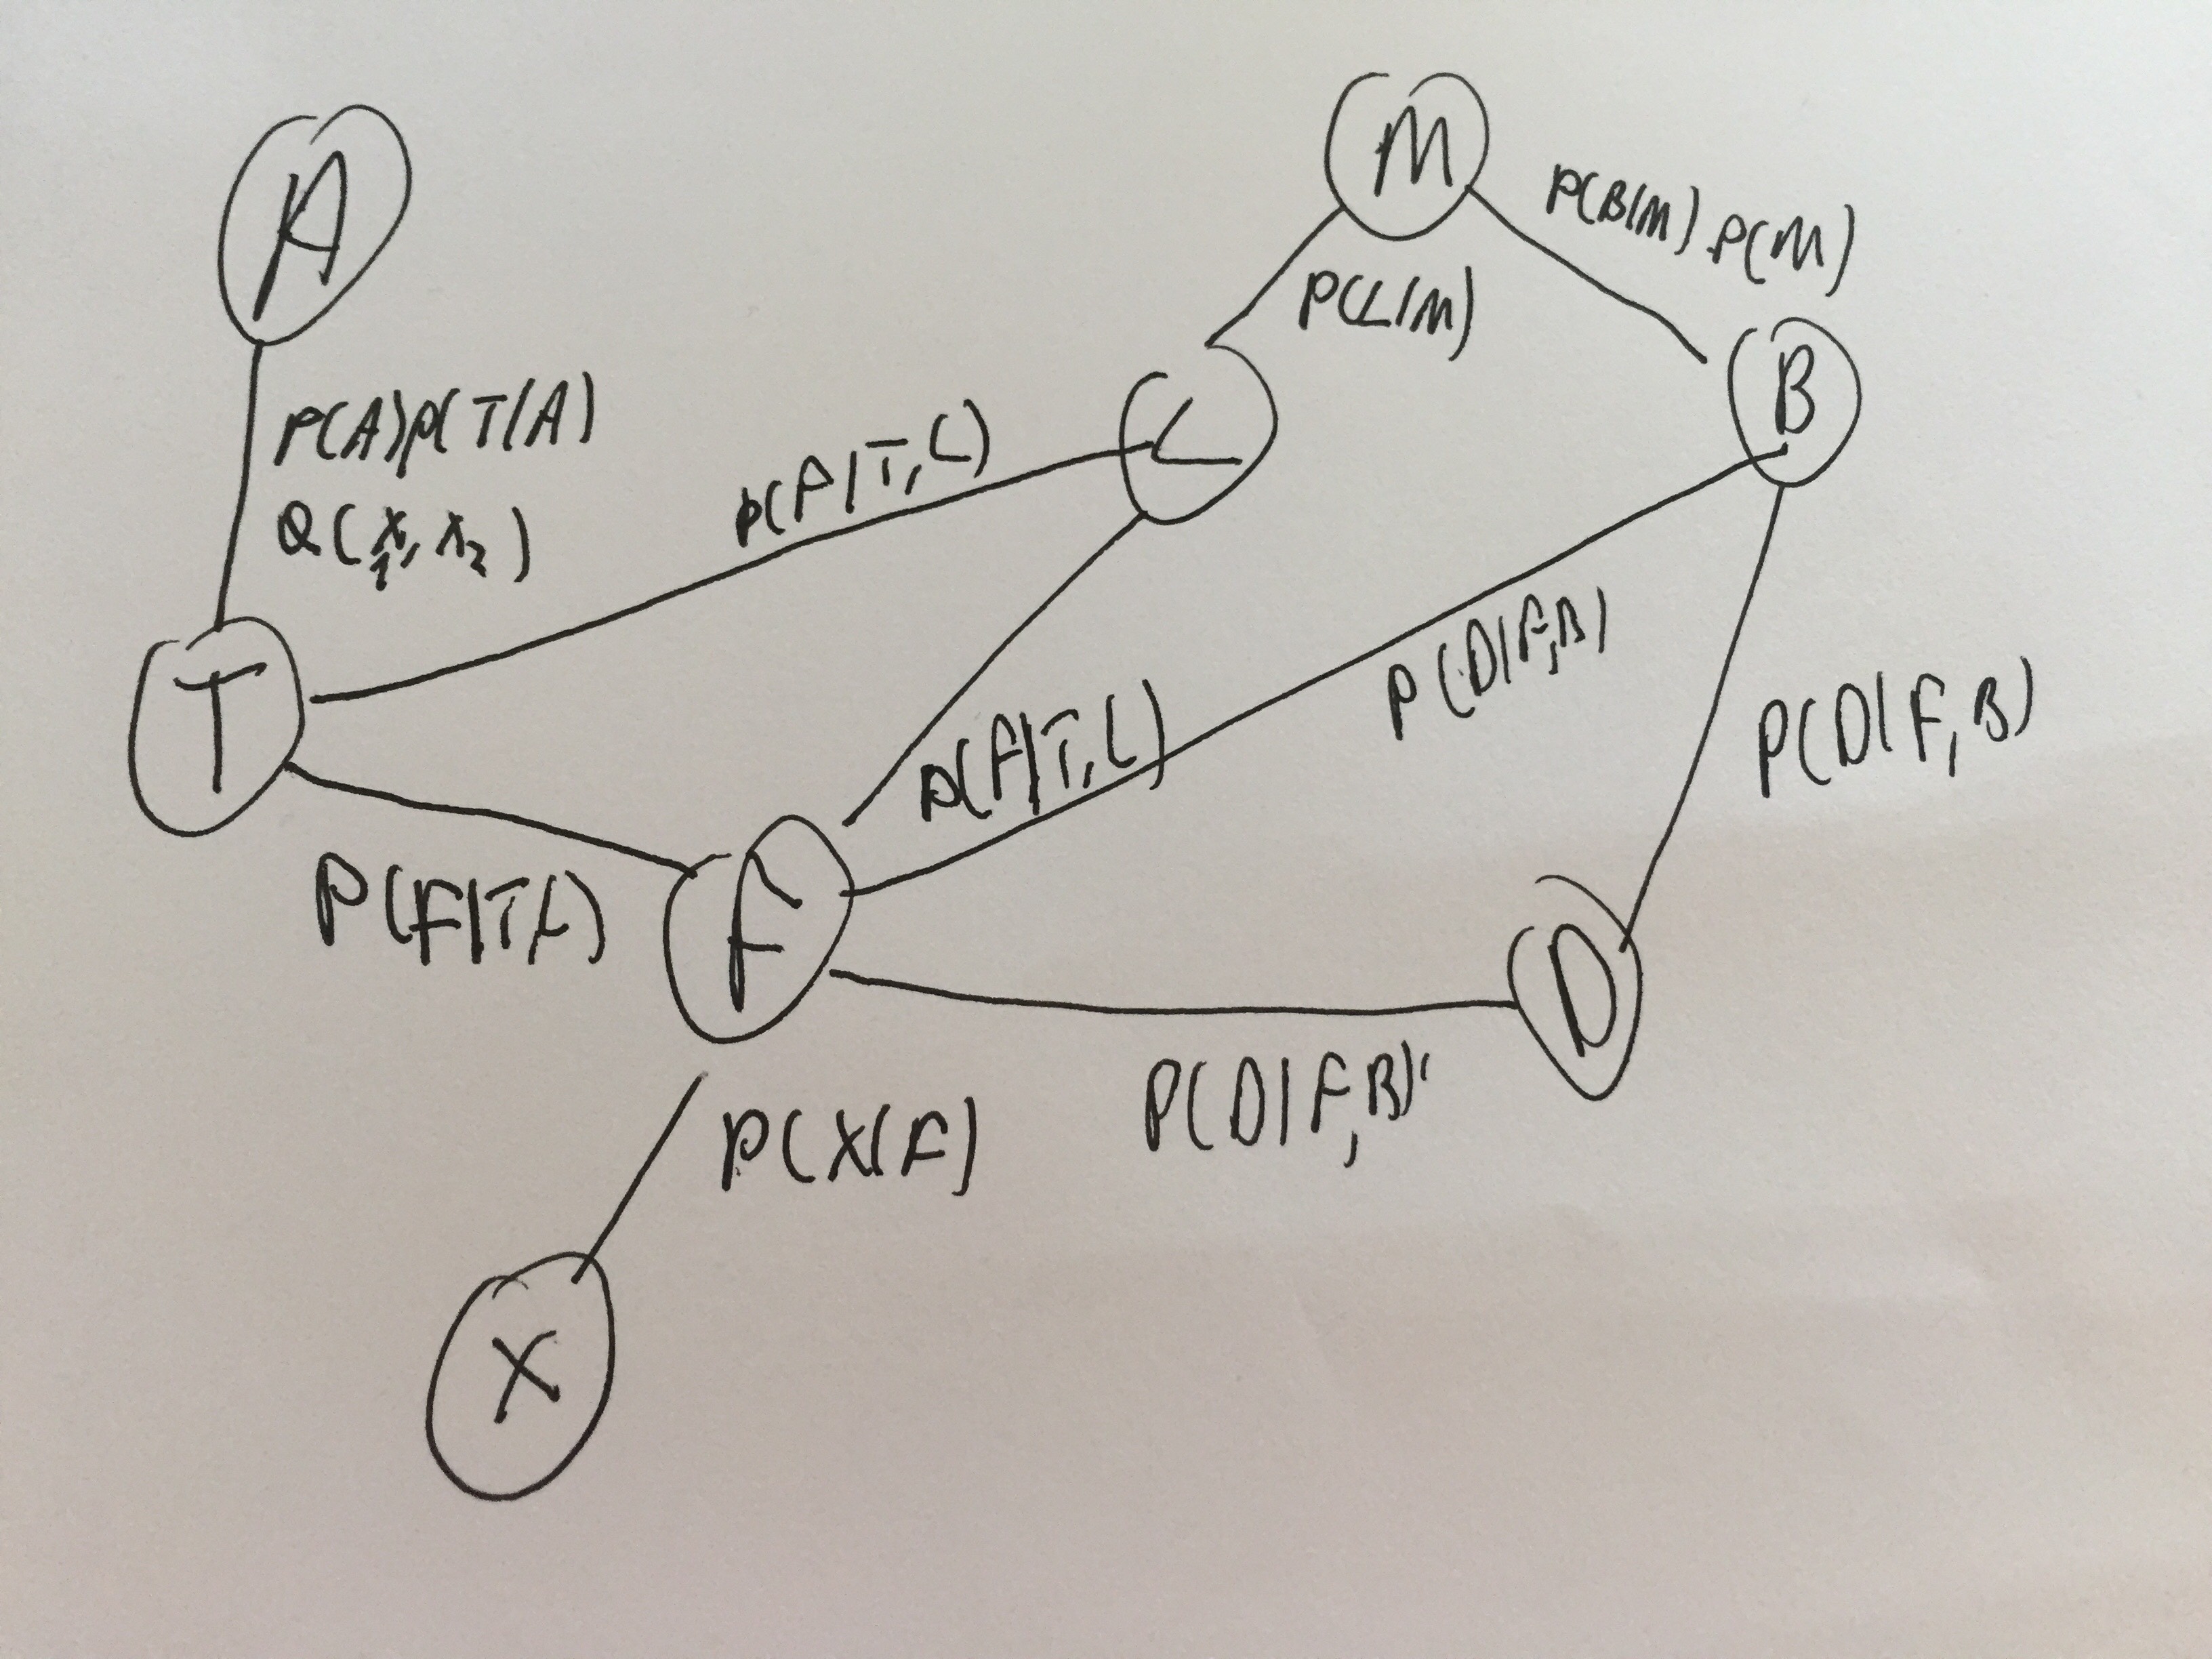 M
A
P(B|M) P(M)
P(L|M)
B
P(A)p(T|A)
Q(x1, x2)
p(F|T,L)
L
P(D|F,B)
T
P(D|F,B)
p(F|T,L)
P(F|T,L)
F
D
P(D|F,B)
P(X|F)
X